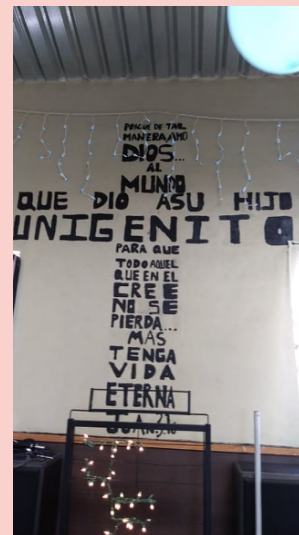 PORQUE DE TAL
MANERA AMO
DIOS...
AL
MUNDO
QUE DIO ASU HIJO
UNIGENITO
PARA QUE
TODO AQUEL
QUE EN EL
CREE
NO SE
PIERDA...
MAS
TENGA
VIDA
ETERNA